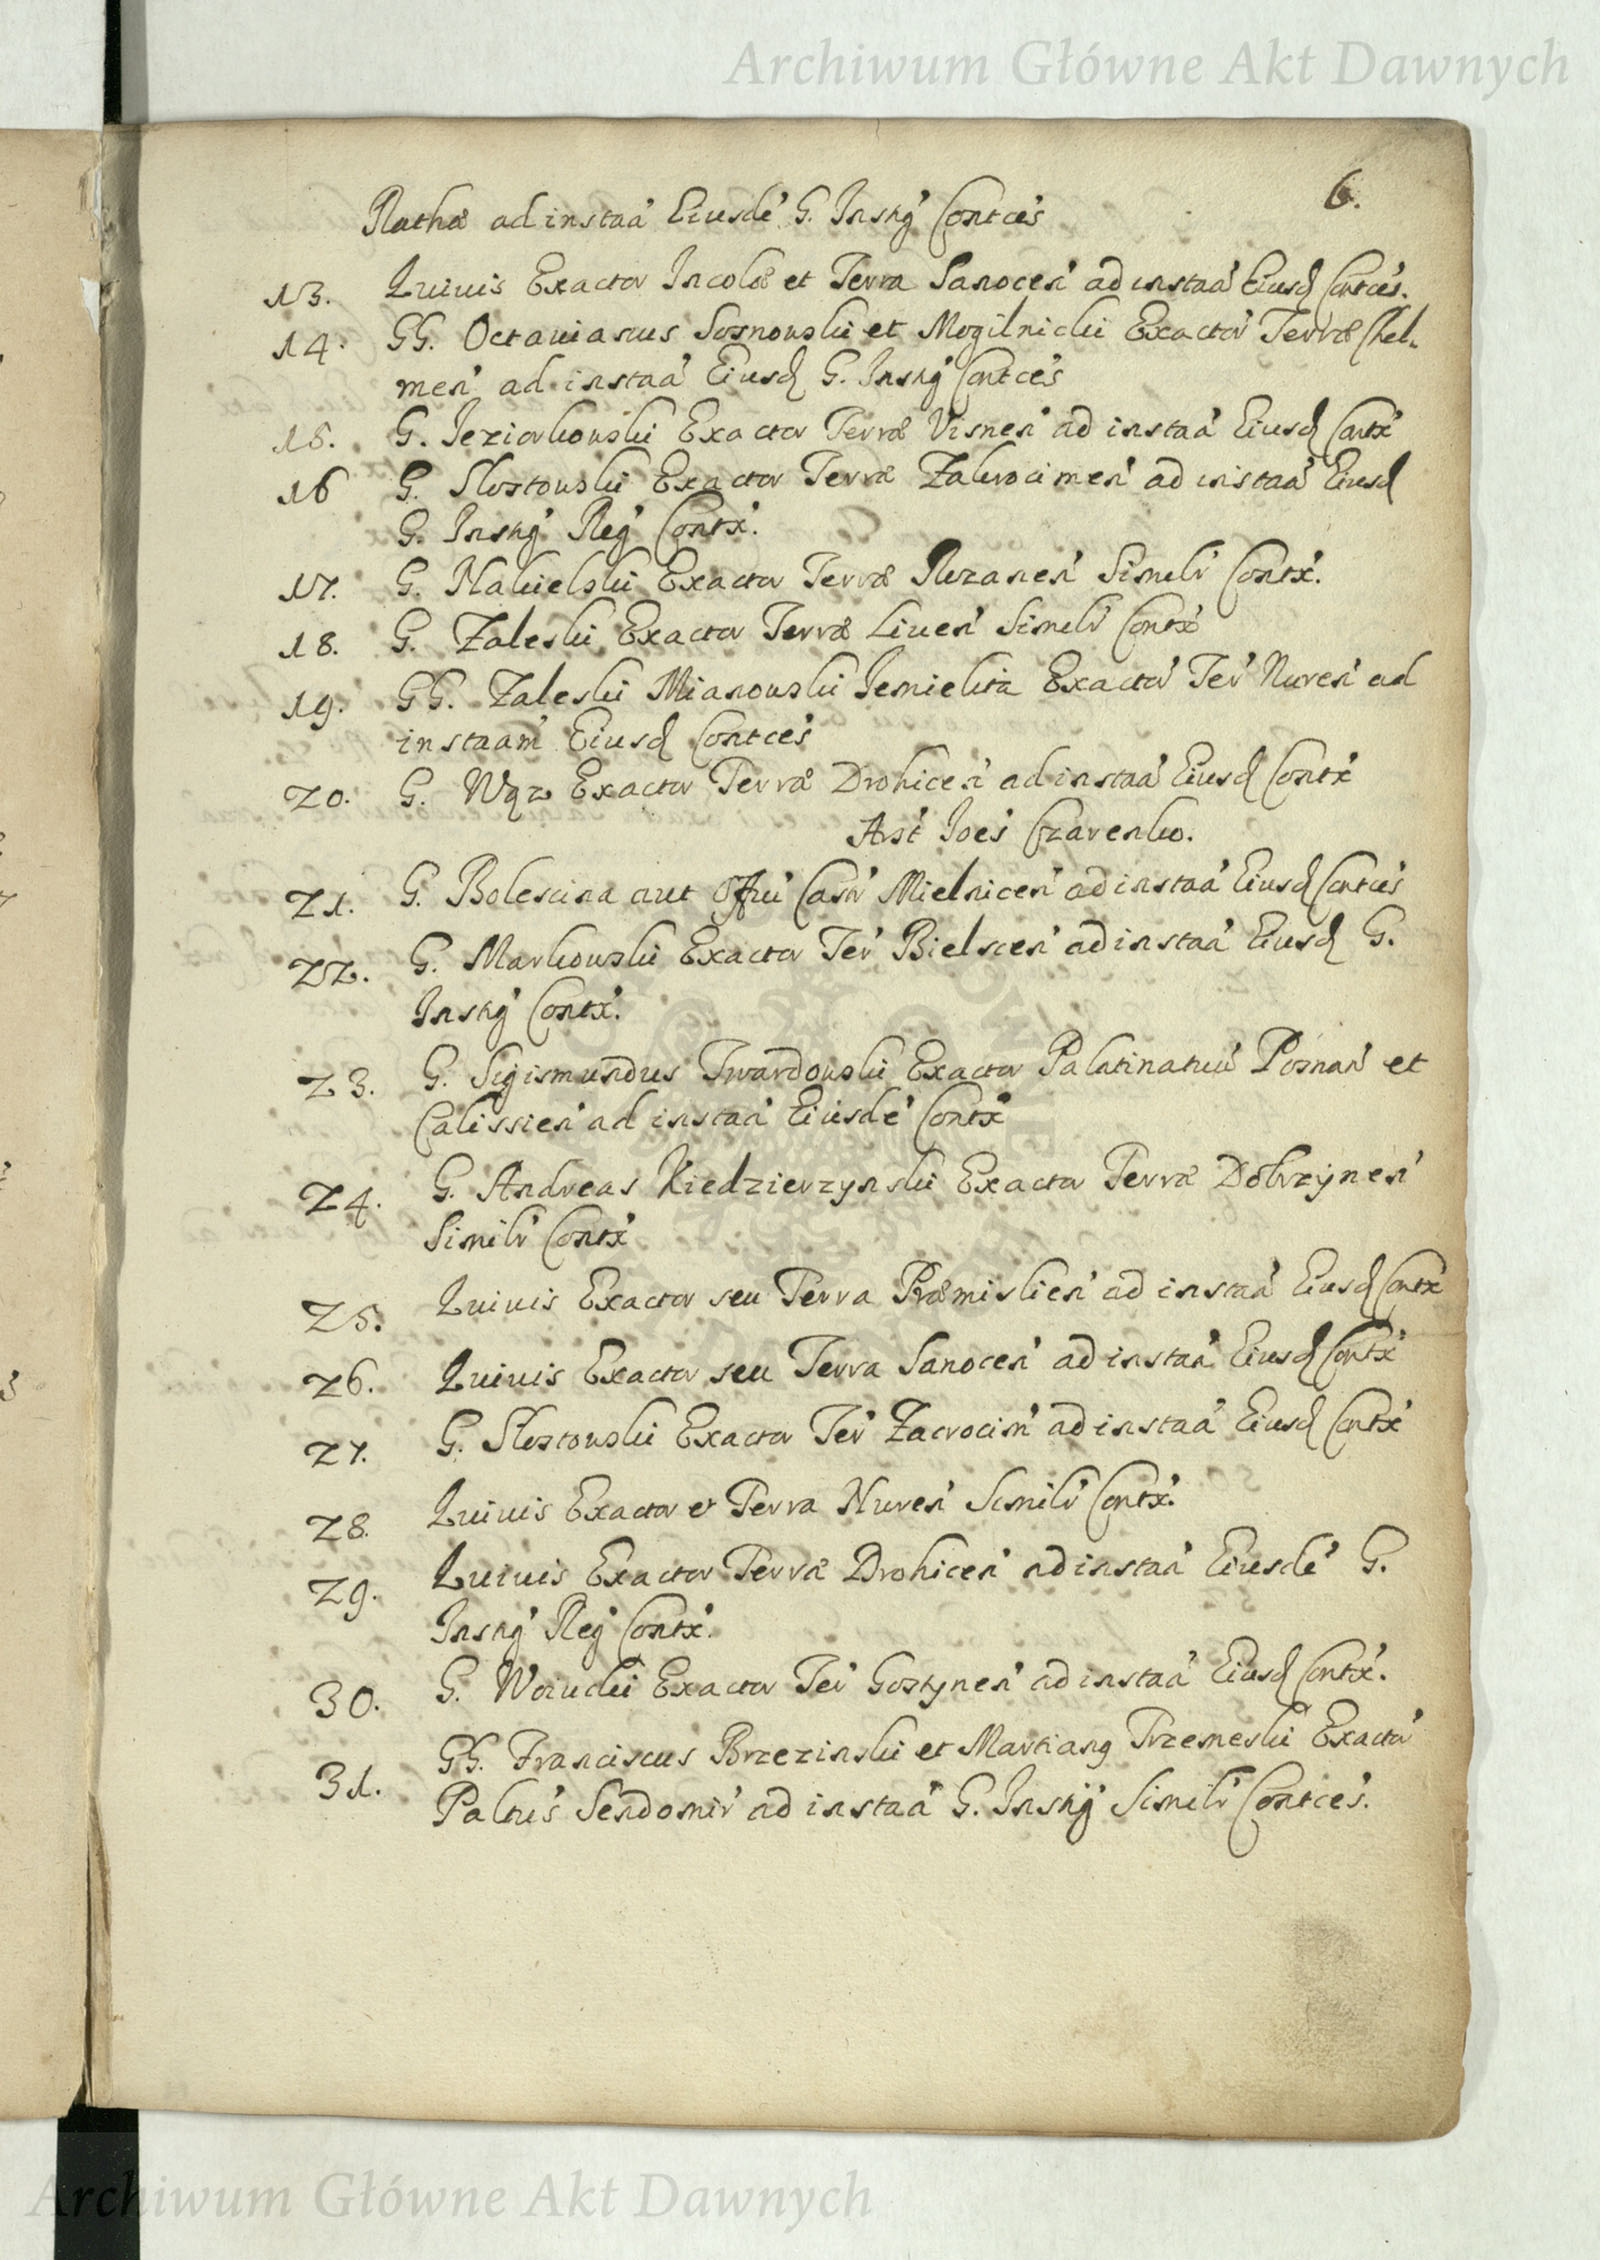 Archiwum Główne Akt Dawnych
6.
Rathae ad instaa' Eiusde' G. Instig' Contces
13. Quiuis Exactor Incolae et Terra Sanocen' ad instaa' Eiusd Contces.
14. GG. Octauianus Sosnowski et Mogilnicki Exactor' Terrae Chel-
men' ad instaa' Eiusd G. Instig' Contces
15. G. Jeziorkowski Exactor Terrae Visnen' ad instaa' Eiusd Contx
16 G. Slostowski Exactor Terrae Zakrocimen' ad instaa' Eiusd
G. Instig' Reg' Contx.
17. G. Nakielski Exactor Terrae Rozanen' Simelr' Contx.
18. G. Zaleski Exactor Terrae Liuen' Simelr' Contx
19. GG. Zaleski Mianowski Jemielita Exactor' Ter' Nuren' ad
instaam' Eiusd Contces
20. G. Wąz Exactor Terrae Drohicen' ad instaa' Eiusd Contx
Arst' Joes' Czarenko.
21. G. Bolescina aut Offu' Casr' Mielnicen' ad instaa' Eiusd Contces
22. G. Markowski Exactor Ter' Bielscen' ad instaa' Eiusd G.
Instig' Contx.
23. G. Sigismundus Twardowski Exactor Palatinatuu' Posnan' et
Calissien' ad instaa' Eiusde' Contx
24. G. Andreas Kiedzierzynski Exactor Terrae Dobrzynen'
Similr' Contx
25. Quiuis Exactor seu Terra Praemislien' ad instaa' Eiusd Contx
26. Quiuis Exactor seu Terra Sanocen' ad instaa' Eiusd Contx
27. G. Slostowski Exactor Ter' Zacrocim' ad instaa' Eiusd Contx
28. Quiuis Exactor et Terra Nuren' Similr' Contx.
29. Quiuis Exactor Terrae Drohicen' ad instaa' Eiusde' G.
Instig' Reg' Contx.
30. G. Woiucki Exactor Ter' Gostynen' ad instaa' Eiusd Contx.
31. GG. Franciscus Brzezinski et Martiang Trzemeski Exactor'
Paltus' Sendomir' ad instaa' G. Instig' Similr' Contces.
Archiwum Główne Akt Dawnych